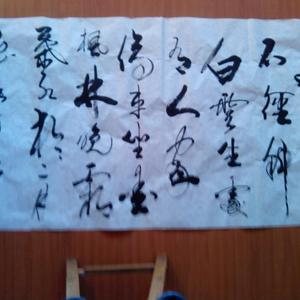 石徑斜
白雲生處
有人家
停車坐愛
楓林晚霜
葉紅於二月